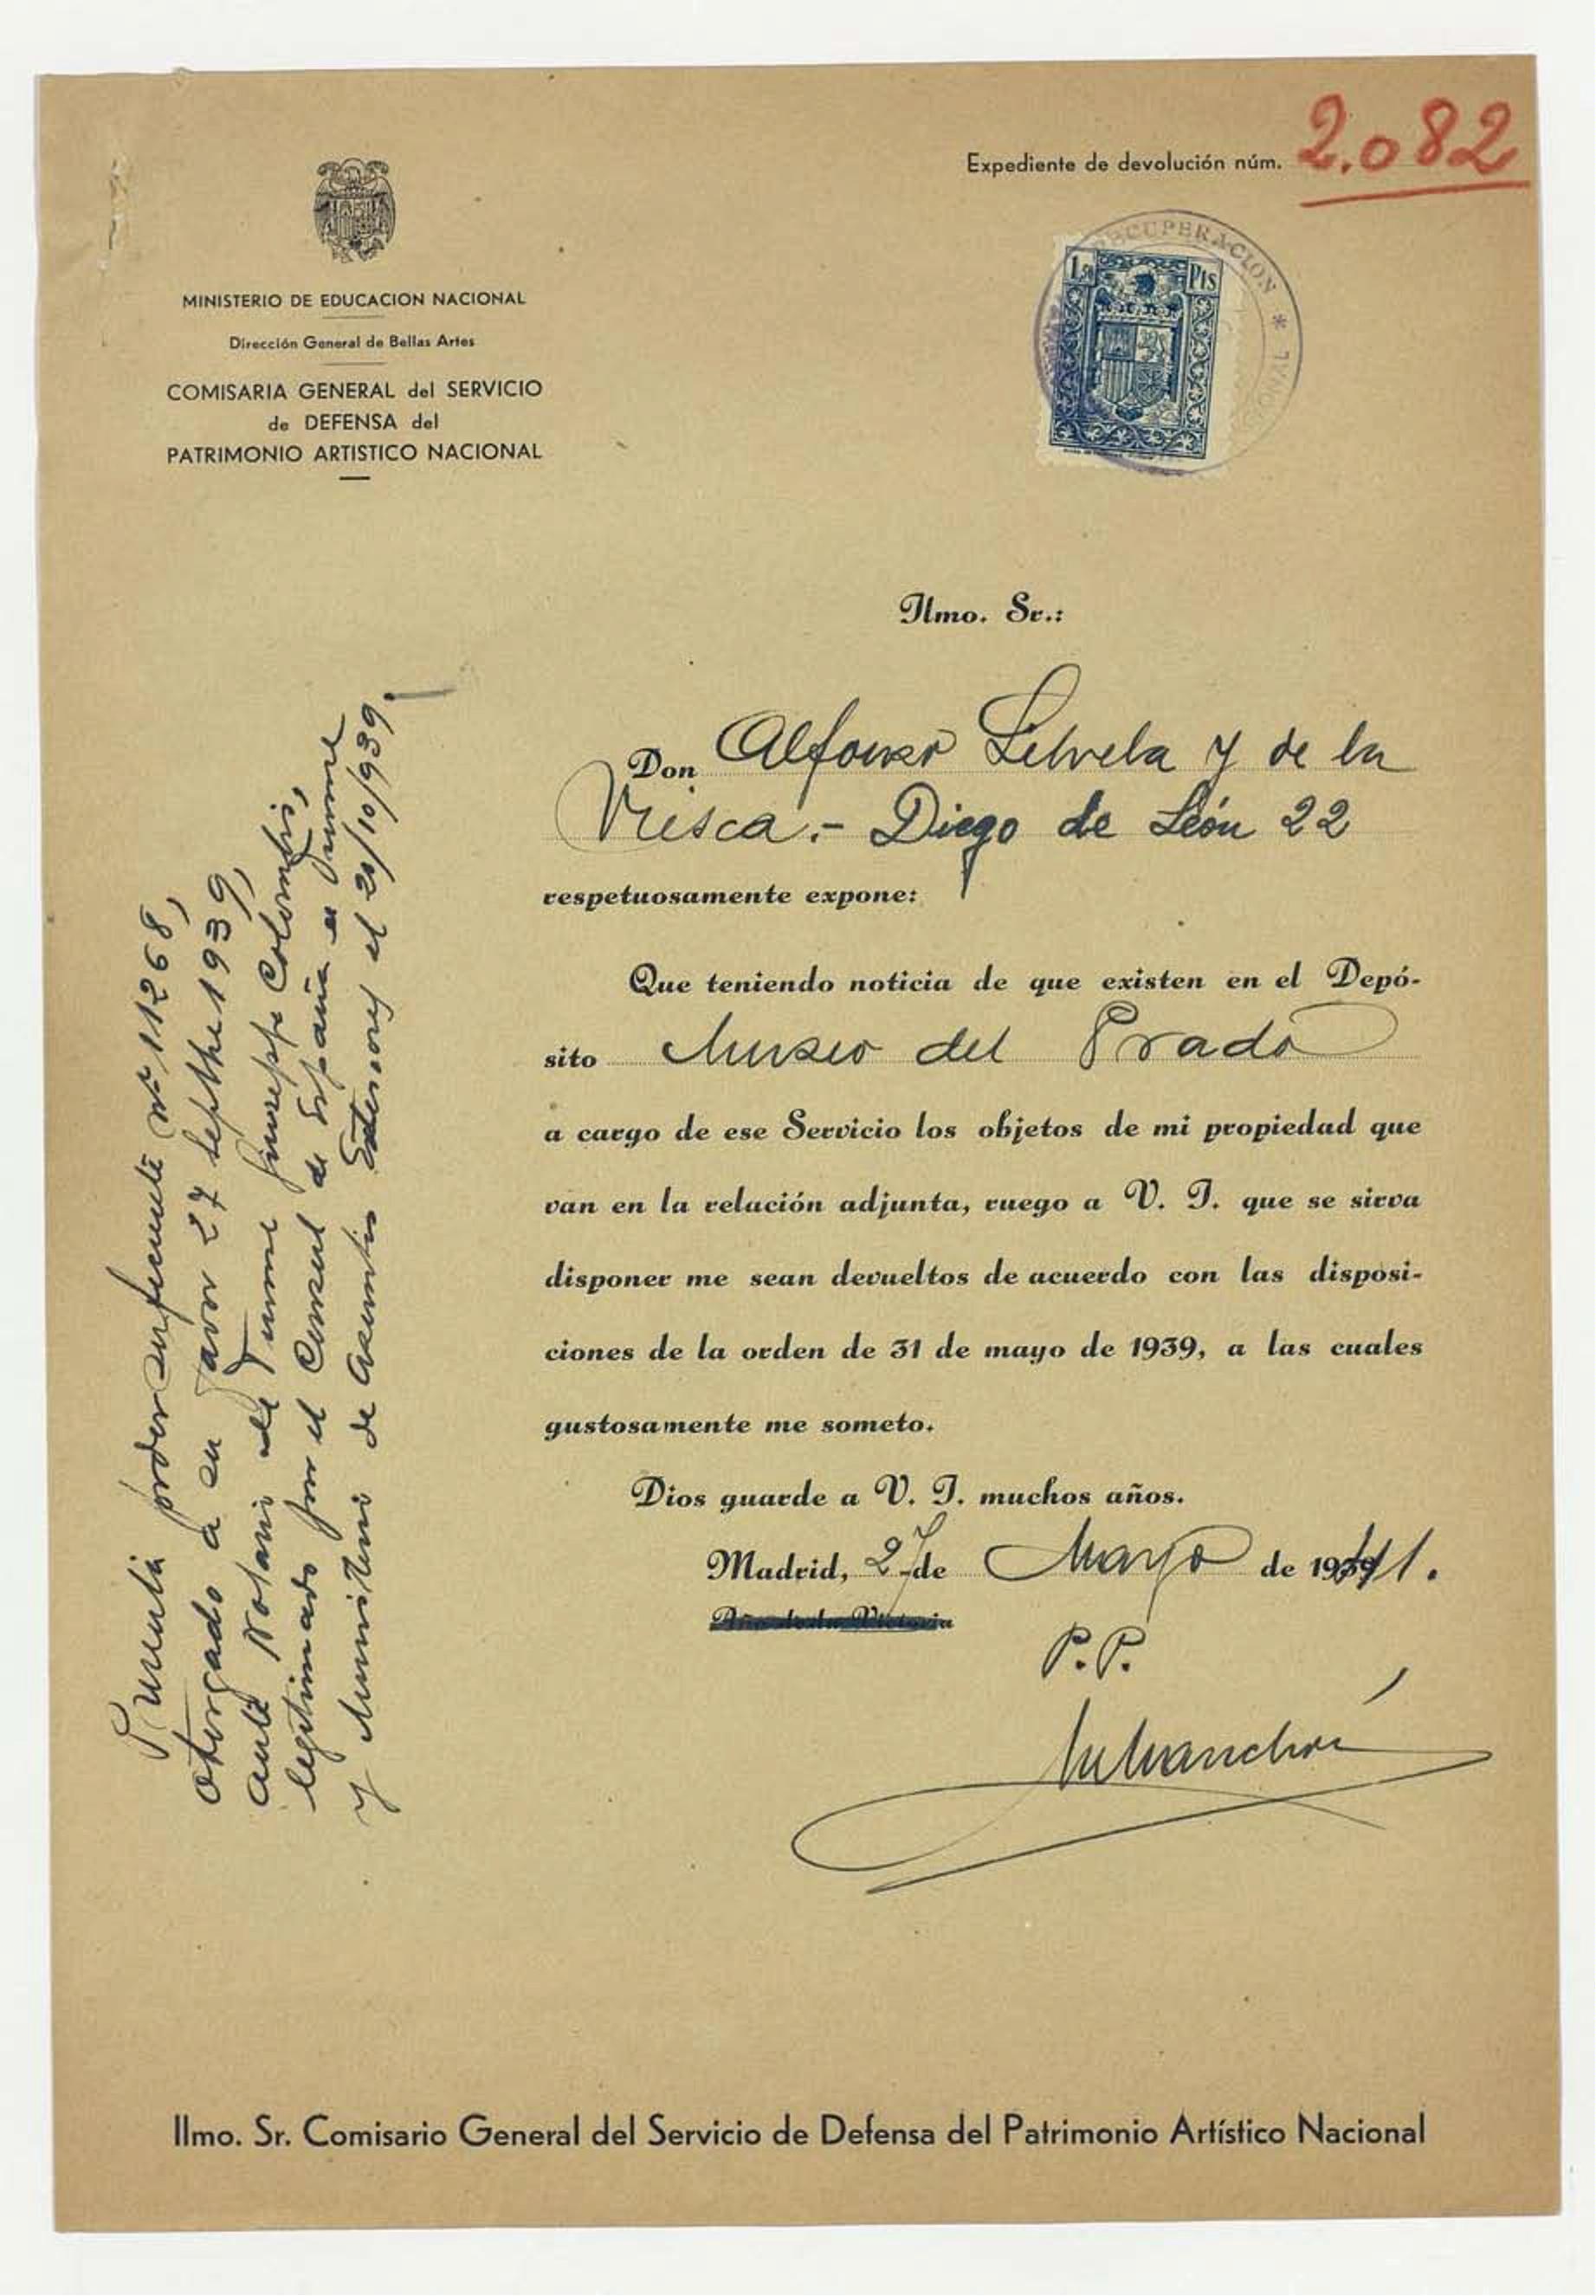 Expediente de devolución núm. 2.082
MINISTERIO DE EDUCACION NACIONAL
Dirección General de Bellas Artes
COMISARIA GENERAL del SERVICIO
de DEFENSA del
PATRIMONIO ARTISTICO NACIONAL
RECUPERACION *
1,50 Pts
Ilmo. Sr.:
Don Alfonso Silvela y de la
Viesca.- Diego de León 22
respetuosamente expone:
Que teniendo noticia de que existen en el Depó-
sito Museo del Prado
a cargo de ese Servicio los objetos de mi propiedad que
van en la relación adjunta, ruego a V. I. que se sirva
disponer me sean devueltos de acuerdo con las disposi-
ciones de la orden de 31 de mayo de 1939, a las cuales
gustosamente me someto.
Dios guarde a V. I. muchos años.
Madrid, 27 de Mayo de 1941.
Año de la Victoria
P.P.
Presenta poder suficiente nº 11268,
otorgado a su favor 27 Septbre 1939,
ante Notario de Fiume Giuseppe
legitimado por el Consul de España en Fiume
y Ministerio de Asuntos Exteriores el 20/10/939.
Ilmo. Sr. Comisario General del Servicio de Defensa del Patrimonio Artístico Nacional